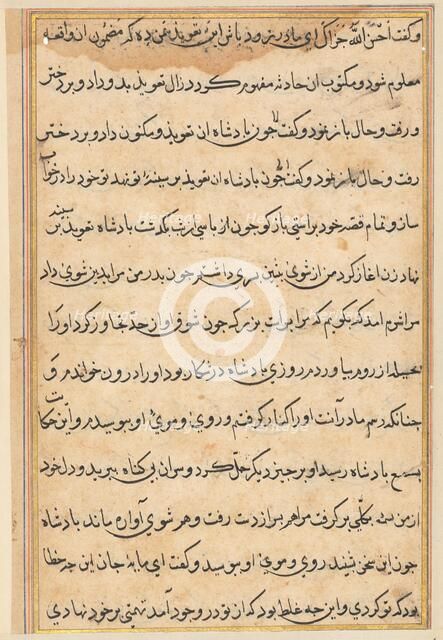 و گفت احسن الله جزاک ای مادر تو روز باش این تعویذ بمن ده که مضمون ان واقعه
معلوم شود و مکتوب ان حادثه مفهوم کردد زال تعویذ بدو داد و بر دختر
و رفت و حال باز نمود و گفت چون بادشاه ان تعویذ و مکنون داد و بر دختر
رفت و حال باز نمود و گفت چون بادشاه ان تعویذ بر سینه تو نهد تو خود را در خواب
ساز و تمام قصه خود براستی باز کو چون از شب پاسی بکذشت بادشاه تعویذ بر سینه
نهاد زن اغاز کرد من از شوی پیشین پسری داشتم چون پدر من مرا بدین شوی داد
مرا شرم امد که بگویم که مرا پسرست بزرک چون شوق او از حد تجاوز کرد او را
بحیله از روم بیاوردم روزی بادشاه در شکار بود او را درون خواندم و
چنانکه رسم مادرانست او را کنار کرفتم و روی و موی او ببوسیدم و این حکایت
بسمع بادشاه رسید او بر چیز دیگر حمل کرد و سر ان بی کناه ببرید و دل خود
از من بکلی بر گرفت مرا هم پسر از دست رفت و هم شوی آواره ماند بادشاه
چون این سخن شنید روی و موی او ببوسید و گفت ای مایه جان این چه خطا
بود که تو کردی و این چه غلط بود که از تو در وجود آمد تهمتی بر خود نهادی